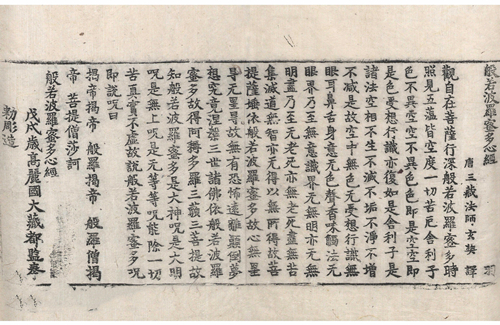 般若波羅蜜多心經 羽
唐三藏法師玄奘 譯
觀自在菩薩行深般若波羅蜜多時
照見五蘊皆空度一切苦厄舍利子
色不異空空不異色色即是空空即
是色受想行識亦復如是舍利子是
諸法空相不生不滅不垢不淨不增
不減是故空中無色無受想行識無
眼耳鼻舌身意無色聲香味觸法無
眼界乃至無意識界無無明亦無無
明盡乃至無老死亦無老死盡無苦
集滅道無智亦無得以無所得故菩
提薩埵依般若波羅蜜多故心無罣
㝵無罣㝵故無有恐怖遠離顛倒夢
想究竟涅槃三世諸佛依般若波羅
蜜多故得阿耨多羅三藐三菩提故
知般若波羅蜜多是大神呪是大明
呪是無上呪是無等等呪能除一切
苦真實不虛故說般若波羅蜜多呪
即說呪曰
揭帝揭帝 般羅揭帝 般羅僧揭
帝 菩提僧莎訶
般若波羅蜜多心經
戊戌歲高麗國大藏都監奉
勑彫造